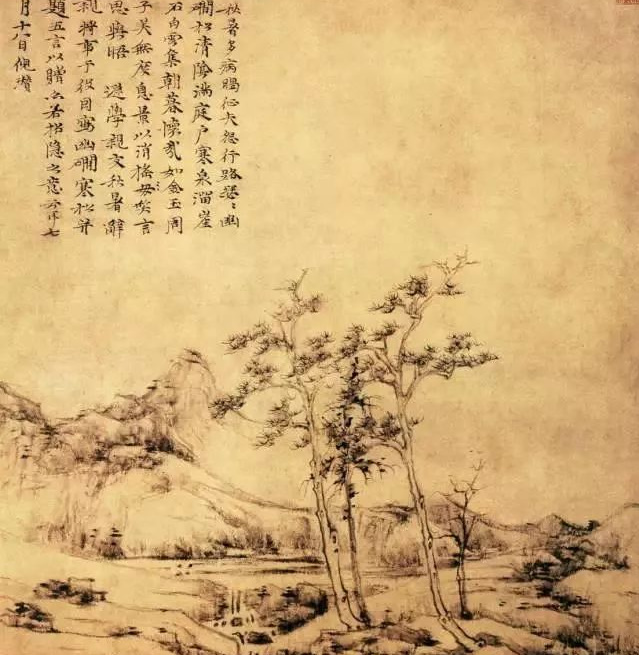 秋暑多病暍征夫怨行路瑟瑟幽
磵松清陰滿庭戶寒泉溜崖
石白雲集朝暮懷哉如金玉周
子美無度息景以消搖毋笑言
思與晤 遜學親友秋暑辭
親將事于役因寫幽磵寒松并
題五言以贈亦若招隱之意云耳七
月十八日倪瓚